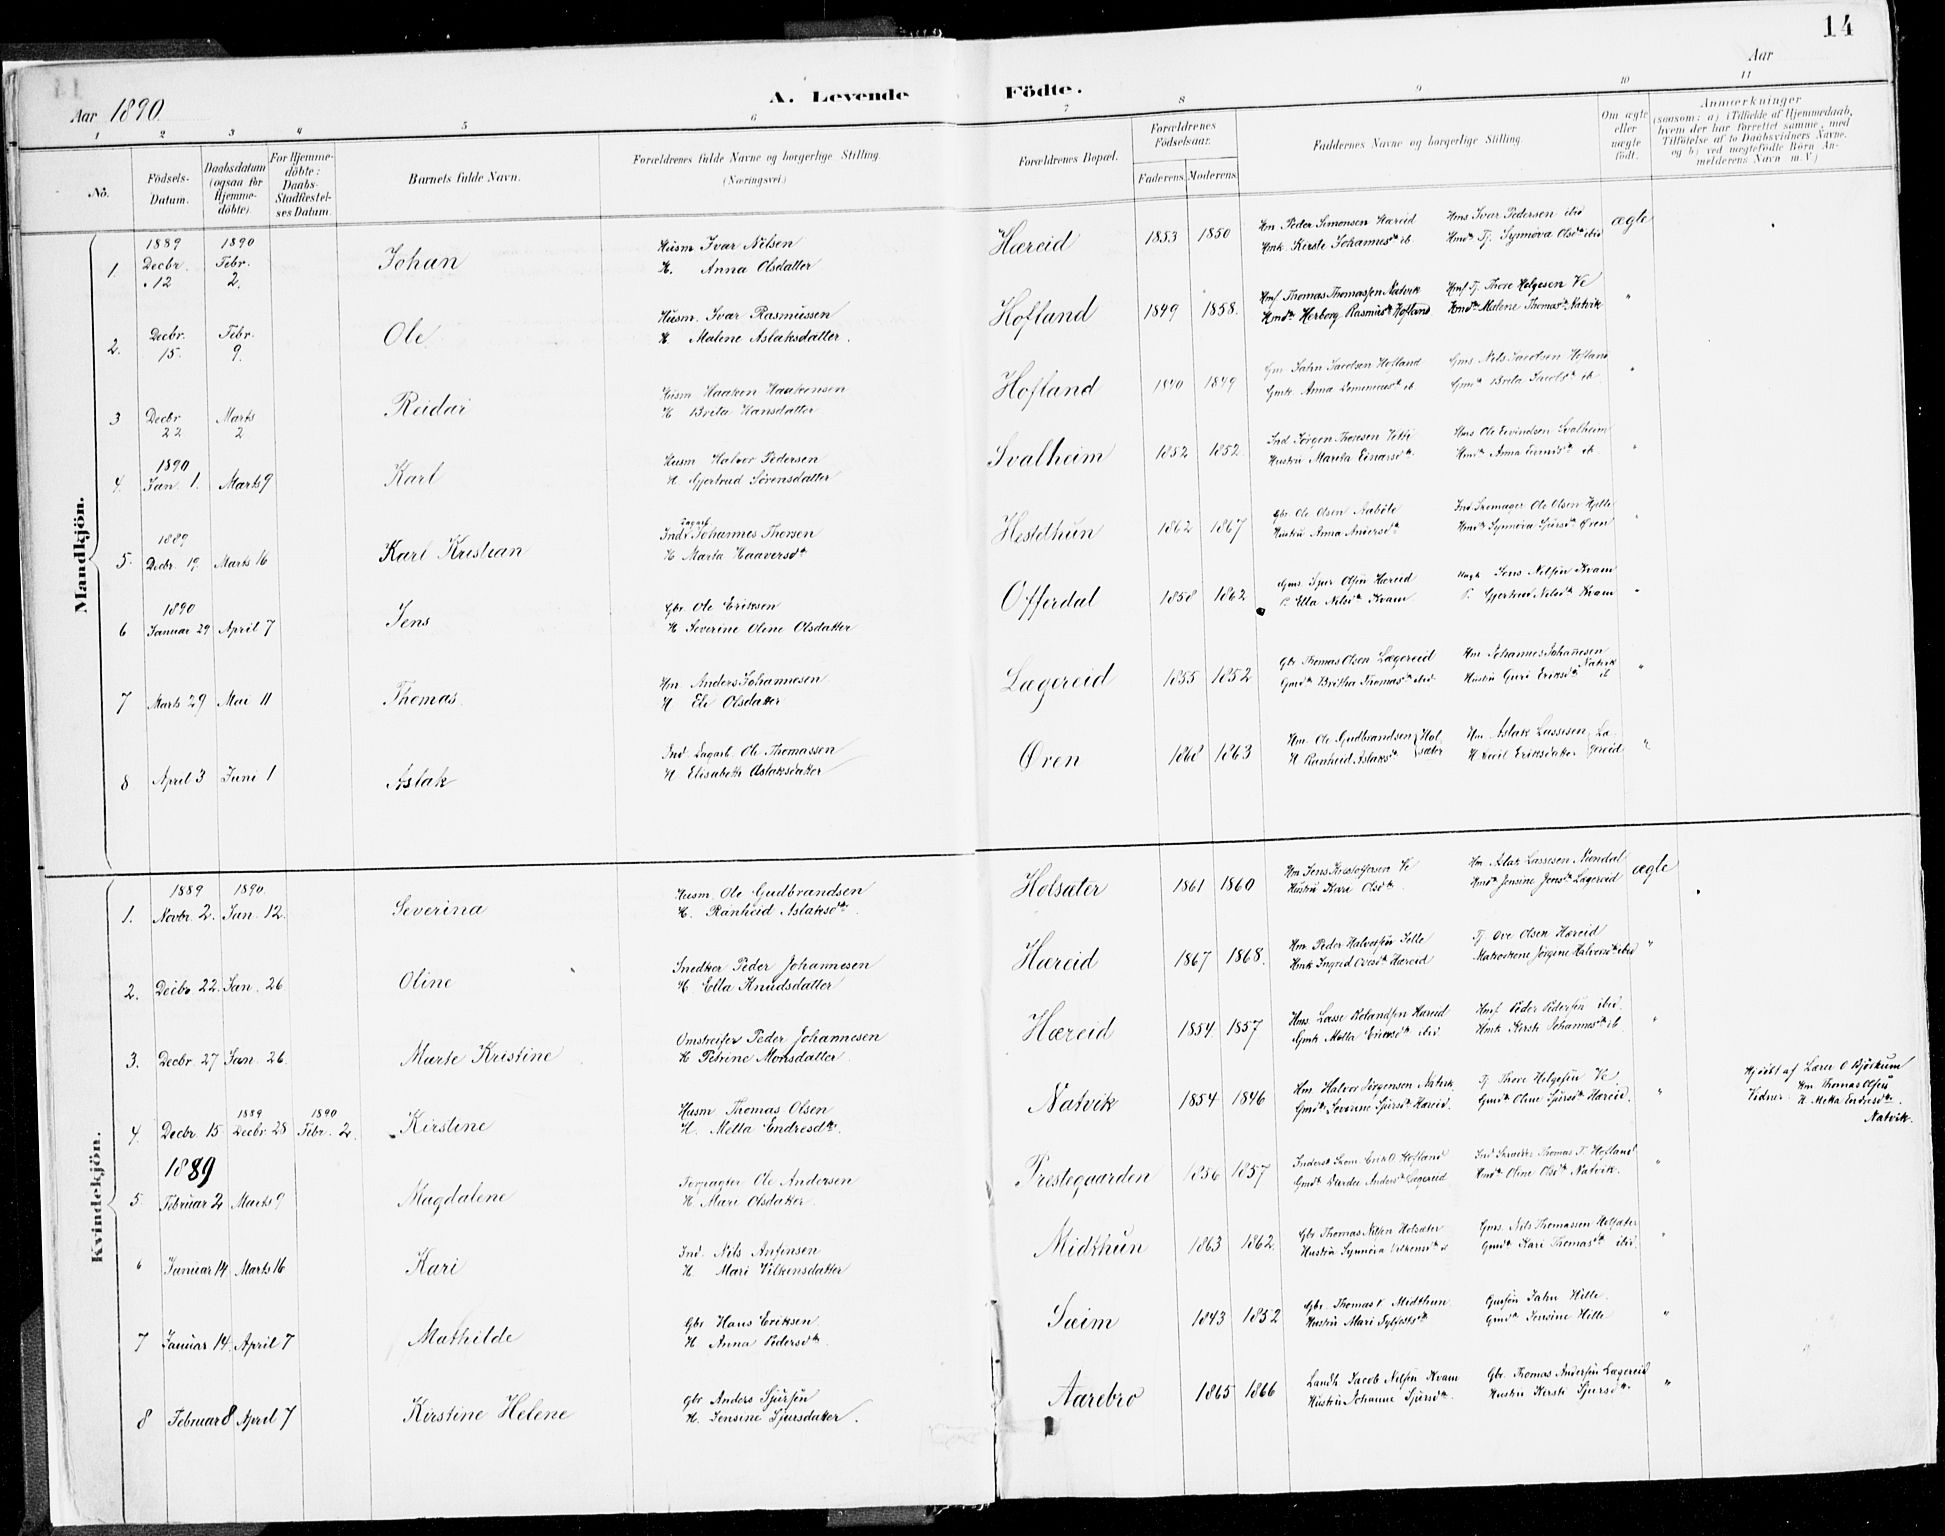 14
Aar 1890
A. Levende Födte.
Aar
1 2 3 4 5 6 7 8 9 10 11
No.
Födsels-Datum.
Daabsdatum (ogsaa for Hjemme-döbte).
For Hjemme-döbte: Daabs-Stadfæstel-ses Datum.
Barnets fulde Navn.
Forældrenes fulde Navne og borgerlige Stilling (Næringsvei.)
Forældrenes Bopæl.
Forældrenes Födselsaar.
Faderens. Moderens.
Faddernes Navne og borgerlige Stilling.
Om ægte eller uægte födt.
Anmærkninger
(saasom: a) i Tilfælde af Hjemmedaab,
hvem der har forrettet samme, med
Tilföielse af to Daabsvidners Navne.
og b) ved uægtefödte Börn An-
melderens Navn m. V.)
Mandkjön.
1 1889 Decbr. 12 1890 Febr. 2. Johan
Husm Ivar Nilsen
H. Anna Olsdatter
Hæreid 1853 1850
Hm Peder Simonsen Hæreid
Hmk Kirste Johannesdtr ib.
Hms Ivar Pedersen ibid
Hmd Tj. Synnöva Olsdtr ibid
ægte
2. Decbr. 15. Febr. 9. Ole
Husm. Ivar Rasmussen
H. Malene Aslaksdatter.
Hofland 1849 1858.
Hmf Thomas Thomassen Natvik
Hmdtr Herborg Rasmusdtr Hofland
Hmf Tj. Thore Helgesen Ve
Hmdtr Malene Thomasdtr Natvik
"
3 Decbr 22 Marts 2 Reidar
Husm Haaken Haakensen
H Brita Hansdatter
Hofland 1840 1849
Gm Jahn Jacobsen Hofland
Gmk Anna
Gms Nils Jacobsen Hofland
Gmdtr Brita Jacobsdtr ib.
"
4. 1890 Jan. 1. Marts 9 Karl
Husm Halvor Pedersen
H. Gjertrud Sörensdatter
Svalheim 1852 1852.
Ind Jörgen Thoresen Vetti
Hustru Marita Einarsdtr
Hms Ole Eivindsen Svalheim
Hmdtr Anna ib.
"
5. 1889 Decbr. 19. Marts 16 Karl Kristian
Indr. Dagarb. Johannes Thorsen
H Marta Haaversdtr
Hestethun 1862 1867
Gbr. Ole Olsen Aaböle
Hustru Anna Andersdtr
Ind Skomager Ole Olsen Hjelle
Hmdtr Synnöva Sjursdtr Øren
"
6 1890 Januar 29 April 7 Jens
Gbr. Ole Eriksen
H Severine Oline Olsdatter
Offerdal 1858 1862
Gms Sjur Olsen Hæreid
P. Ella Nilsdtr Kvam
Ungk Jens Nilsen Kvam
P. Gjertrud Nilsdtr Kvam
"
7 Marts 29 Mai 11 Thomas.
Hm Anders Johannesen
H Eli Olsdatter
Lægereid 1855 1852
Gbr Thomas Olsen Lægereid
Gmdtr Britha Thomasdtr ibid
Hm Johannes Johannesen Natvik
Hustru Guri Eriksdtr ib
"
8 April 3 Juni 1 Aslak
Ind Dagarb. Ole Thomassen
H Elisabeth Aslaksdatter
Øren 1868 1863
Hm. Ole Gudbrandsen Holsæter
H Ranheid Aslaksdtr
Hm Aslak Lassesen Lægereid
H Eriksdatter
"
Kvindekjön.
1. 1889 Novbr. 2. 1890. Jan. 12. Severina
Husm. Ole Gudbrandsen
H. Ranheid Aslaksdtr.
Holsæter 1861 1860
Hm Jens Kristoffersen Ve
Hustru Kari Olsdtr.
Hm Aslak Lassesen Nundal
Hmdtr Jensine Jensdtr Lægereid
ægte
2. Decbr. 22. Jan. 26 Oline
Snedker Peder Johannesen
H. Ella Knudsdatter
Hæreid 1867 1868.
Hm Peder Halvorsen Selle
Hmk Ingrid Hæreid
Tj Ove Olsen Hæreid
Jörgine Halvorsdtr ibid
"
3. Decbr 27 Jan. 26. Marte Kristine
Omstreifer Peder Johannesen
H Petrine Monsdatter.
Hæreid 1854 1857
Hms Lasse Hæreid
Gmk Metta Eriksdtr ibid
Hmf Peder Pedersen ibid.
Hmk Kirsti Johannesdtr ib.
"
4. Decbr. 15 1889 Decbr 28 1890 Febr. 2. Kirstine
Husm Thomas Olsen
H. Metta Endresdtr.
Natvik 1854 1846
Hm. Halvor Jörgensen Natvik.
Gmdtr Severine Sjursdtr Hæreid.
Tj. Thore Helgesen Ve.
Gmdtr Oline Sjursdtr Hæreid.
"
Hj.döbt af Lærer O Björkum
Vidner Hm Thomas Olsen
H. Metta Endresdtr.
Natvik.
1889
5. Februar 2 Marts 9 Magdalene
Forpagter Ole Andersen
H. Mari Olsdatter
Prestegaarden 1856 1857
Inderst Skom Erik O Hofland
Gmdtr Andersdtr Lægereid
Ind Skrædder Thomas T. Hofland
Hmdtr Oline Olsdtr Natvik.
"
6 Januar 14 Marts 16 Kari
Ind. Nils Anfinsen
H. Mari Vilkensdatter
Midthun 1863 1862.
Gbr Thomas Nilsen Holsæter
Hustru Synnöva Vilkensdtr ib
Gms. Nils Thomassen Holsæter
Gmdtr Kari Thomasdtr ibid.
"
7 Januar 14. April 7 Mathilde
Gbr Hans Eriksen.
H. Anna Pedersdtr.
Sæim 1843 1852
Gbr. Thomas Midthun
Hustru Mari Sylfestsdtr
Jahn Hille.
Gmdtr Jensine Hille
"
8 Februar 8 April 7 Kirstine Helene
Gbr Anders Sjursen
H. Jensine Sjursdatter.
Aarebro 1865 1866
Landh Jacob Nilsen Kvam
Hustru Johanne Sjursdtr.
Gbr. Thomas Andersen Lægereid
Hustru Kirsti Sjursdtr.
"